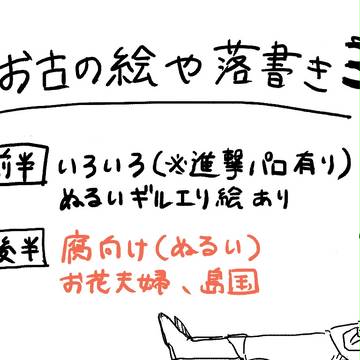 お古の絵や落書き
前半 いろいろ(※進撃パロ有り)
ぬるいギルエリ絵あり
後半 腐向け(ぬるい)
お花夫婦、島国